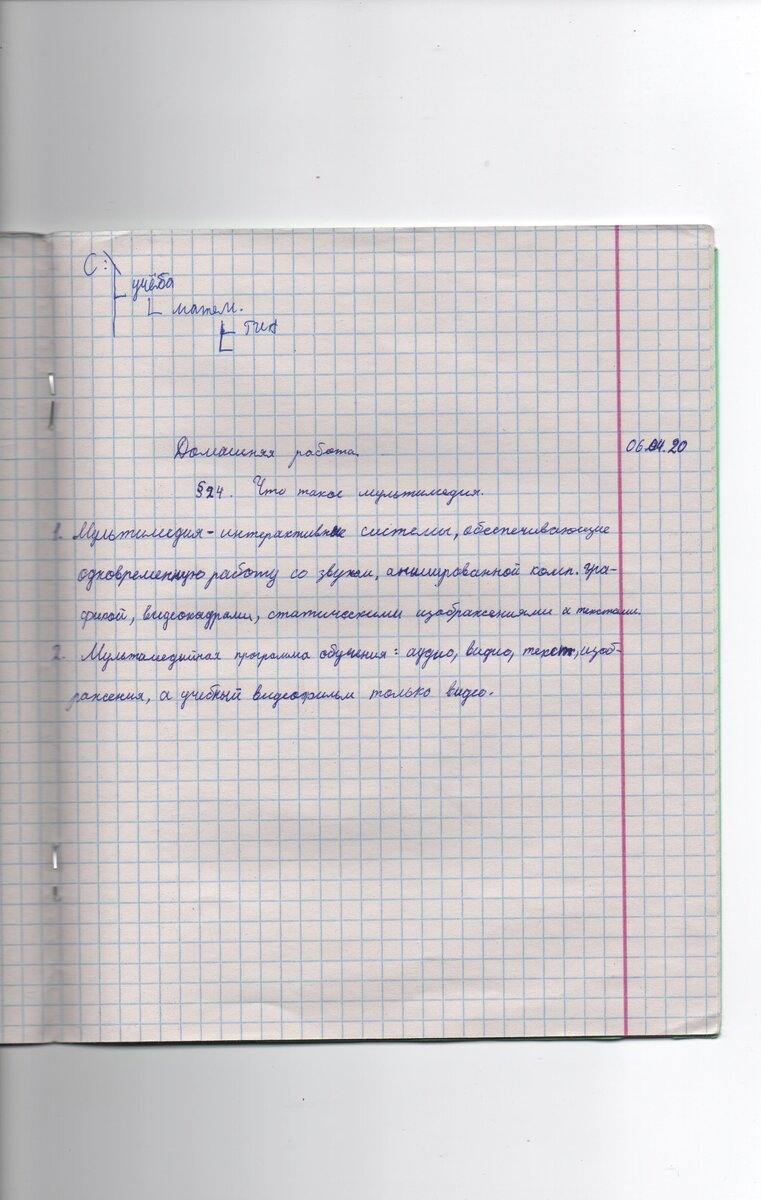 С:\
учёба
матем.
ГИА
Домашняя работа. 06.04.20
§24. Что такое мультимедия.
1. Мультимедия - интерактивные системы, обеспечивающие
одновременную работу со звуком, анимированной комп. гра-
фикой, видеокадрами, статическими изображениями и текстами.
2. Мультимедийная программа обучения: аудио, видио, текст, изоб-
ражения, а учебный видеофильм только видео.